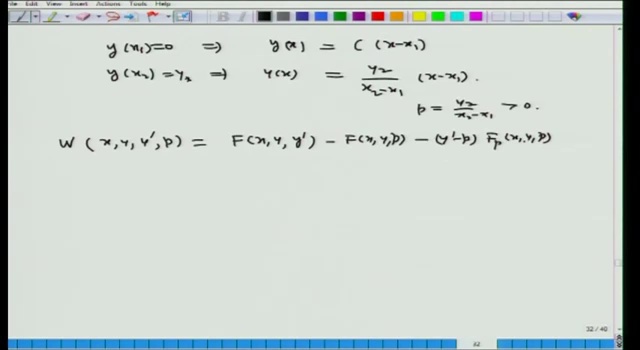 File Edit View Insert Actions Tools Help
y(x₁)=0 ⇒ y(x) = C (x-x₁)
y(x₂) = y₂ ⇒ y(x) = y₂/(x₂-x₁) (x-x₁).
p = y₂/(x₂-x₁) > 0.
W (x, y, y′, p) = F(x, y, y′) - F(x, y, p) - (y′-p) Fₚ(x, y, p)
32 / 40
32